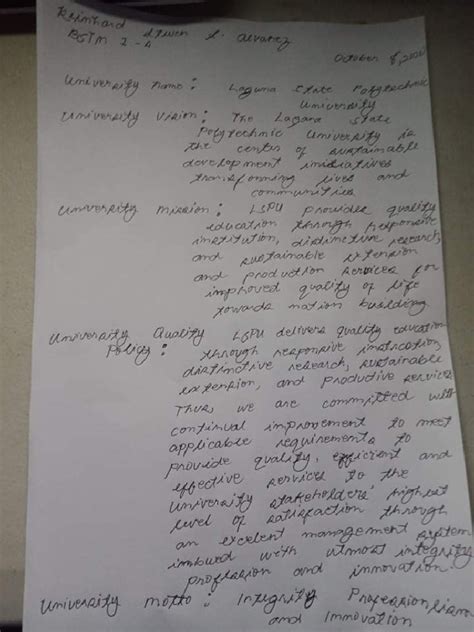 Reinhard Steven S. Alvarez
BSTM 2-4
October 8, 202
University Name : Laguna State Polytechnic
University
University Vision : The Laguna State
Polytechnic University is
the center of sustainable
development initiatives
transforming lives and
communities
University Mission : LSPU provides quality
education through responsive
institution, distinctive research,
and sustainable extension
and production services for
improved quality of life
towards nation building.
University Quality LSPU delivers quality education
Policy : through responsive instruction,
distinctive research, sustainable
extension, and productive services
Thus, we are committed with
continual improvement to meet
applicable requirements to
provide quality, efficient and
effective services to the
University stakeholders' highest
level of satisfaction through
an excelent management system
imbued with utmost integrity
profession and innovation.
University motto : Integrity Professionalism
and Innovation